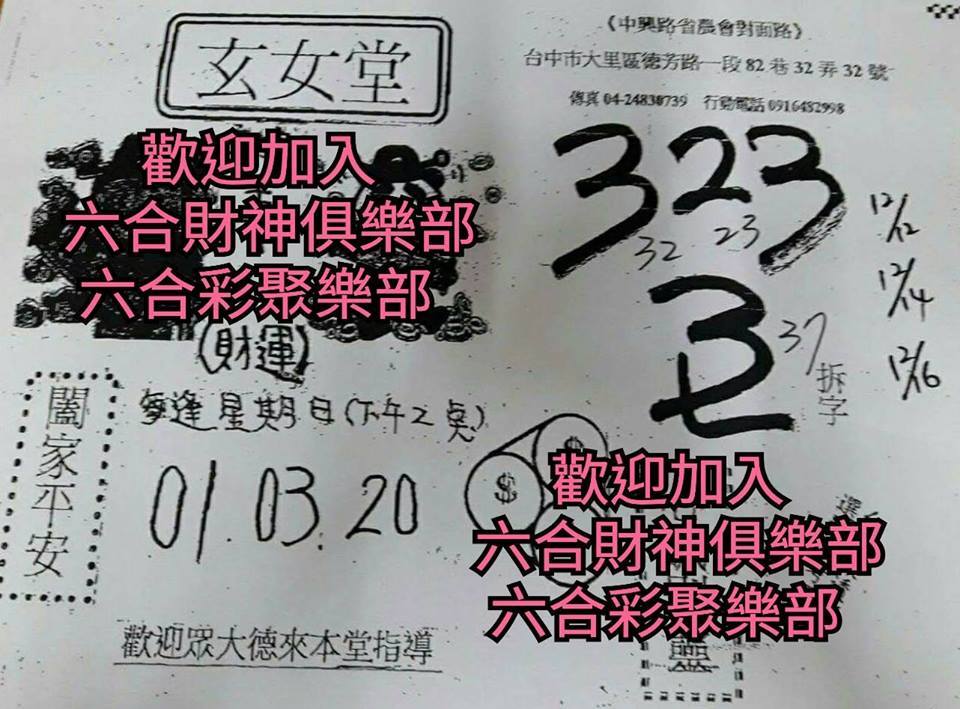 玄女堂
《中興路省農會對面路》
台中市大里區德芳路一段82巷32弄32號
傳真 04-24830739 行動電話 0916482998
歡迎加入
六合財神俱樂部
六合彩聚樂部
(財運)
323
32 23
12/12
12/14
12/16
37
拆字
每逢星期日(下午2点)
01.03.20
闔家平安
$
歡迎加入
六合財神俱樂部
六合彩聚樂部
歡迎眾大德來本堂指導